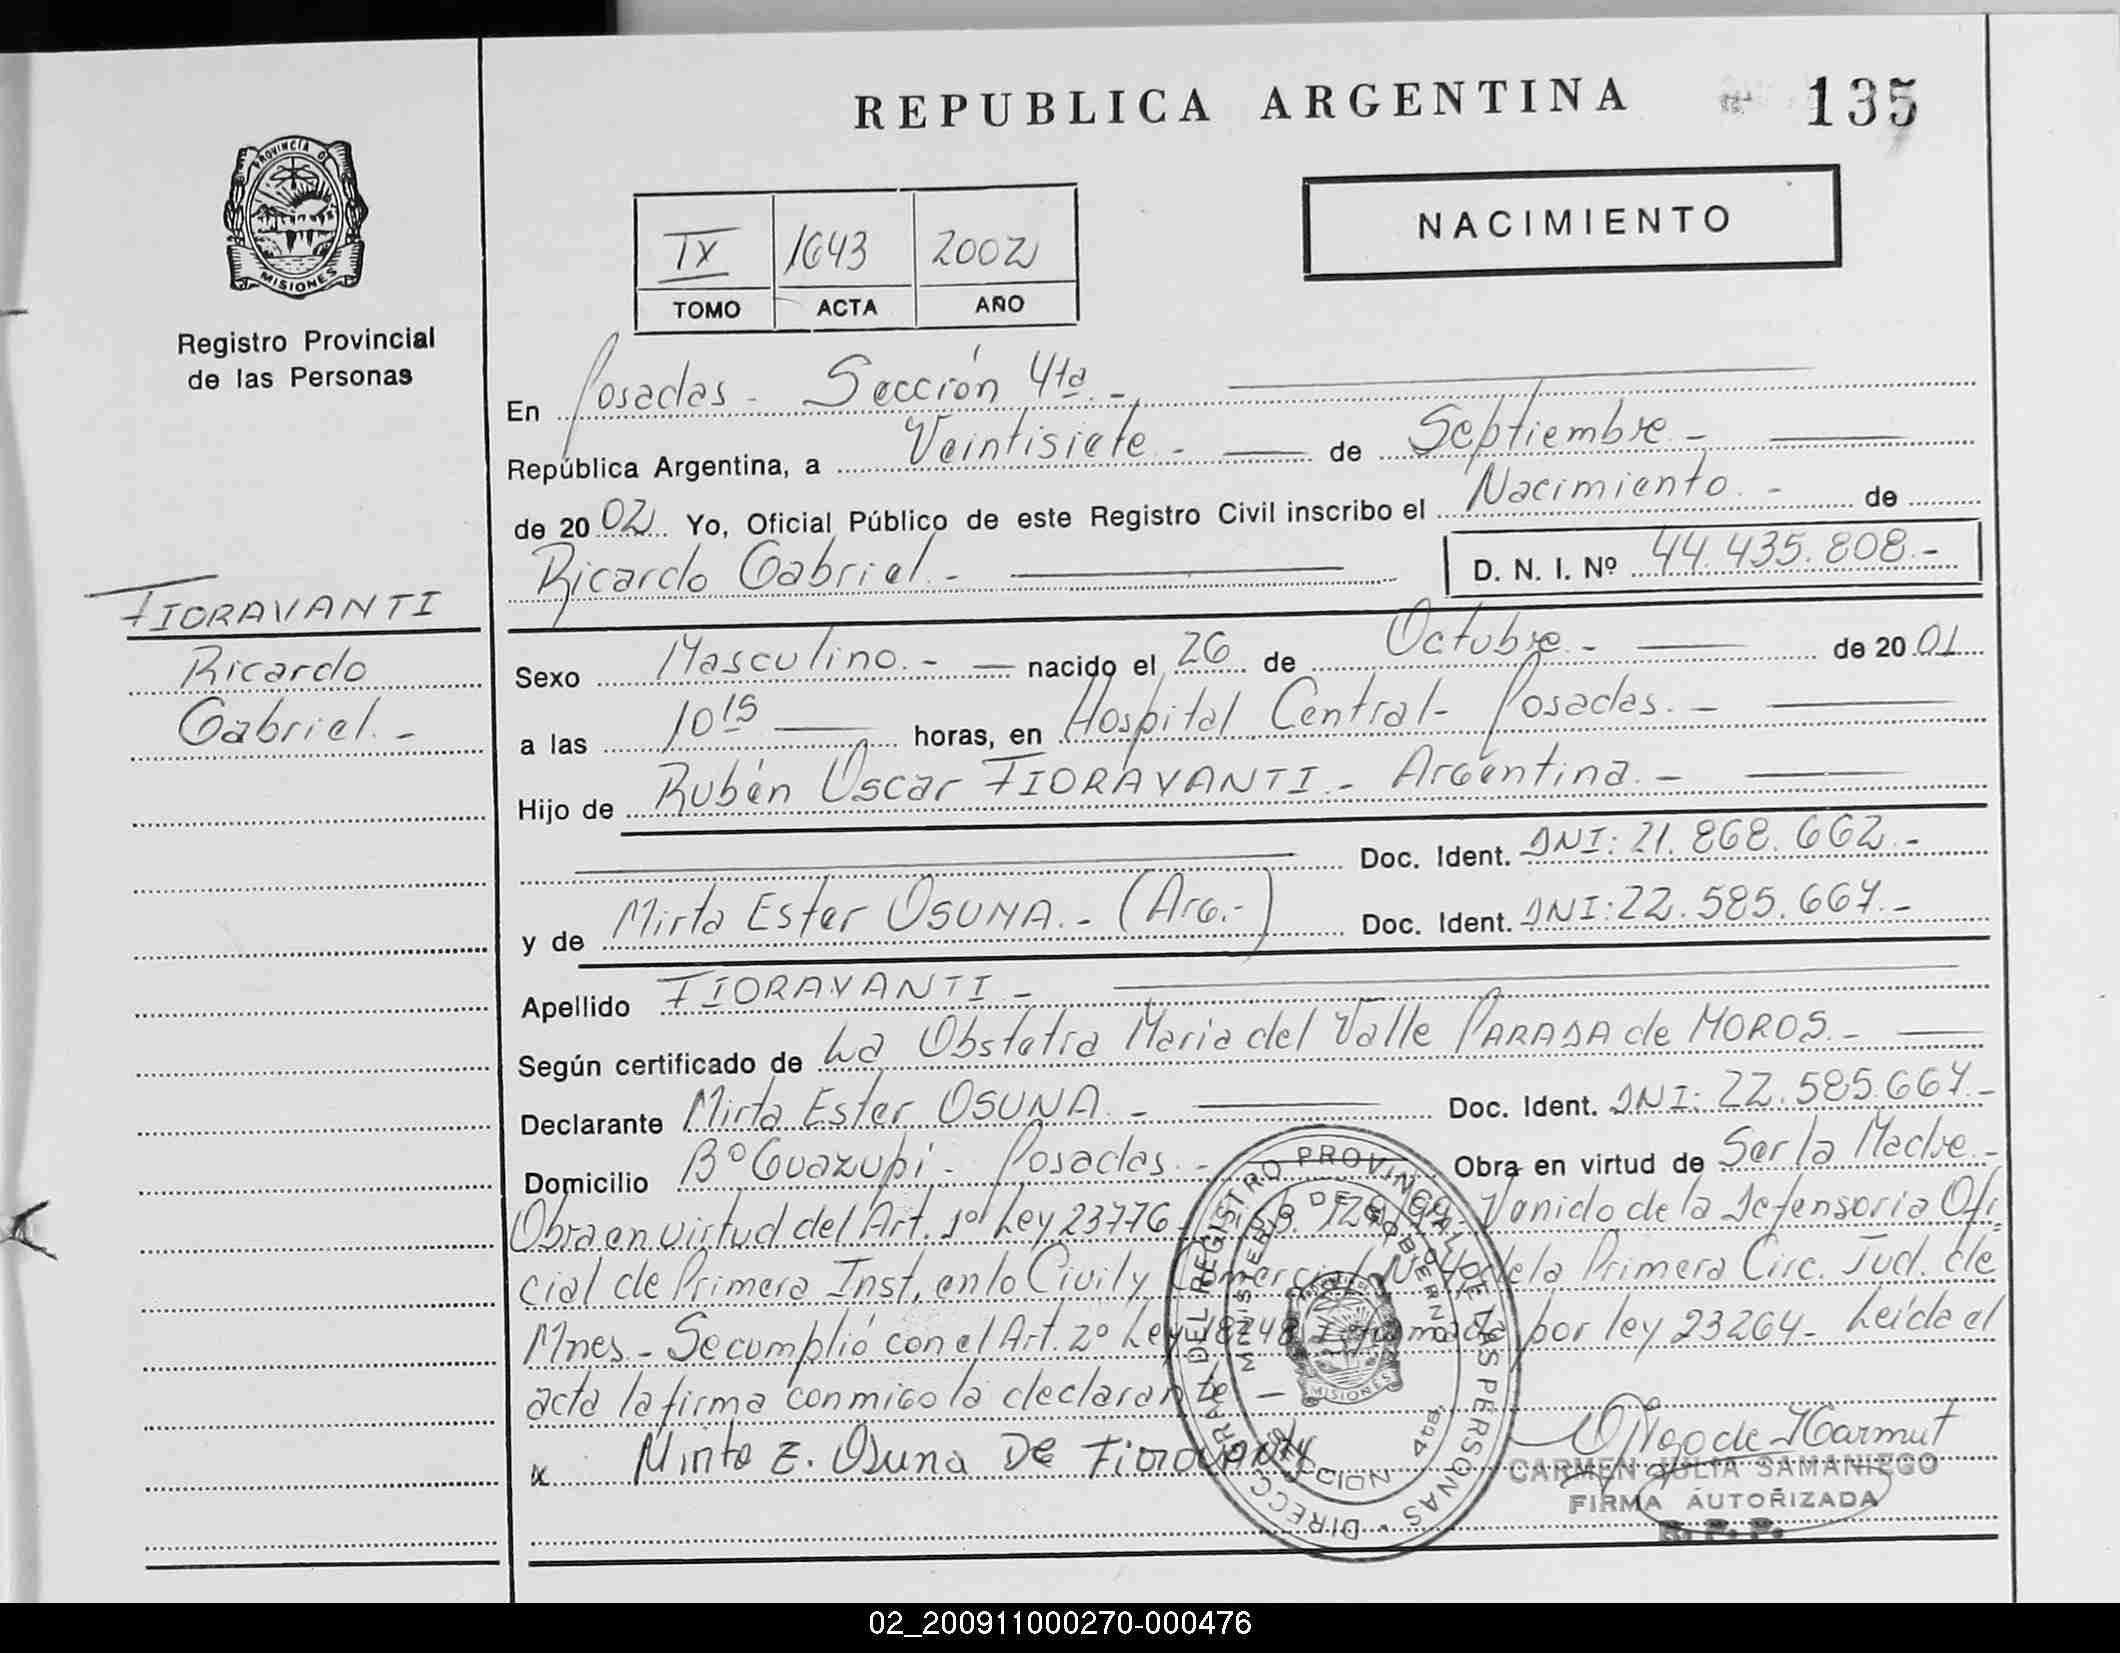 REPUBLICA ARGENTINA
135
PROVINCIA DE MISIONES
Registro Provincial
de las Personas
NACIMIENTO
IX 1643 2002
TOMO ACTA AÑO
En Posadas - Sección 4ta.-
República Argentina, a Veintisiete.- de Septiembre.-
de 2002 Yo, Oficial Público de este Registro Civil inscribo el Nacimiento.- de
Ricardo Gabriel.-
D. N. I. Nº 44.435.808.-
FIORAVANTI
Ricardo
Gabriel.-
Sexo Masculino.- nacido el 26 de Octubre.- de 2001
a las 10 15 horas, en Hospital Central- Posadas.-
Hijo de Rubén Oscar FIORAVANTI.- Argentina.-
Doc. Ident. DNI: 21.868.662.-
y de Mirta Ester OSUNA.- (Arg.-) Doc. Ident. DNI: 22.585.667.-
Apellido FIORAVANTI -
Según certificado de La Obstetra Maria del Valle PARADA de MOROS.-
Declarante Mirta Ester OSUNA.- Doc. Ident. DNI: 22.585.667.-
Domicilio Bº Guazupi - Posadas.- Obra en virtud de Ser la Madre.-
Obra en virtud del Art. 1º Ley 23776 - Venido de la Defensoria Ofi
cial de Primera Inst. en lo Civil y Comercial Nº de la Primera Circ. Jud. de
Mnes.- Se cumplió con el Art. 2º Ley 18248 por ley 23264- Leída el
acta la firma conmigo la declarante -
x Mirta E. Osuna DE Fioravanti
DIRECC. GRAL DEL REGISTRO PROVINCIAL DE LAS PERSONAS
MINISTERIO DE GOBIERNO
SECCION 4ta.
MISIONES
CARMEN JULIA SAMANIEGO
FIRMA AUTORIZADA
R. P. P.
02_200911000270-000476